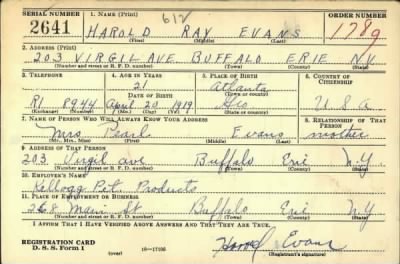 SERIAL NUMBER 1. NAME (Print) ORDER NUMBER
2641 612 HAROLD RAY EVANS 1789
(First) (Middle) (Last)
2. ADDRESS (Print)
203 VIRGIL AVE BUFFALO ERIE N.Y.
(Number and street or R. F. D. number) (Town) (County) (State)
3. TELEPHONE 4. AGE IN YEARS 5. PLACE OF BIRTH 6. COUNTRY OF CITIZENSHIP
21 Atlanta
DATE OF BIRTH (Town or county)
RI 8944 April 20 1919 Geo U S A
(Exchange) (Number) (Mo.) (Day) (Yr.) (State or country)
7. NAME OF PERSON WHO WILL ALWAYS KNOW YOUR ADDRESS 8. RELATIONSHIP OF THAT PERSON
Mrs Pearl Evans mother
(Mr., Mrs., Miss) (First) (Middle) (Last)
9. ADDRESS OF THAT PERSON
203 Virgil ave Buffalo Erie N.Y
(Number and street or R. F. D. number) (Town) (County) (State)
10. EMPLOYER'S NAME
Kellogg Products
11. PLACE OF EMPLOYMENT OR BUSINESS
268 Main St Buffalo Erie N.Y
(Number and street or R. F. D. number) (Town) (County) (State)
I AFFIRM THAT I HAVE VERIFIED ABOVE ANSWERS AND THAT THEY ARE TRUE.
REGISTRATION CARD
D. S. S. Form 1 (over) 16—17105 Harold Evans
(Registrant's signature)